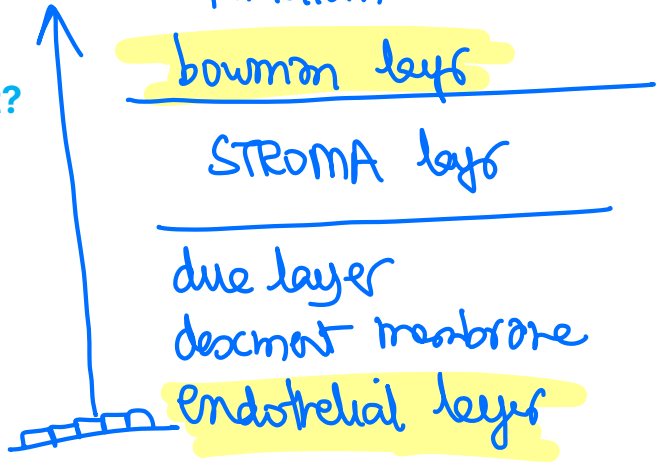 ?
bowman layr
STROMA layr
due layer
descment membrane
endothelial layer